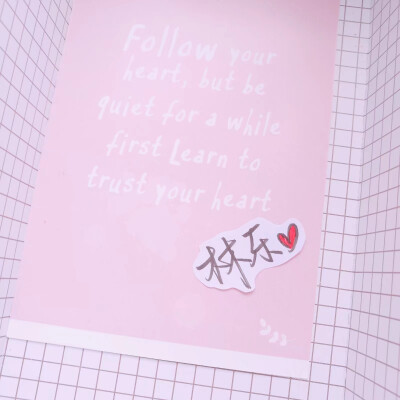 Follow your
heart, but be
quiet for a while
first Learn to
trust your heart
林乐